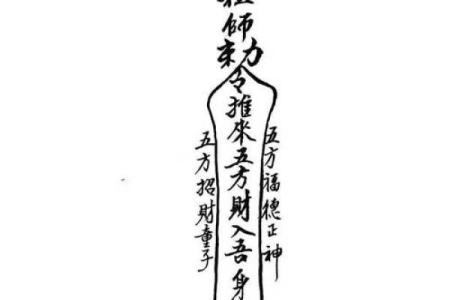 祖師勅令推來五方財入吾身
五方福德正神
五方招財童子